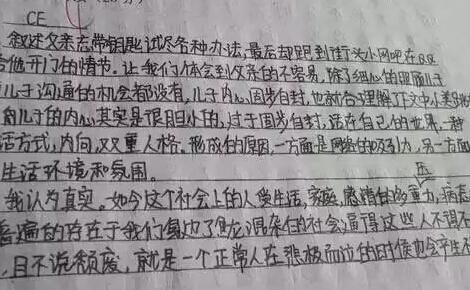 CE
叙述父亲忘带钥匙,试尽各种办法,最后却跑到街头小网吧在QQ
给他开门的情节。让我们体会到父亲的不容易,除了细心的照顾儿子
儿子沟通的机会都没有,儿子内心固步自封,也就会理解了文中小
角儿子的内心其实是很胆小的,过于固步自封,活在自己的世界,一种
活方式,内向,双重人格。形成的原因,一方面是网络的吸引力,另一方面
生活环境和氛围。
压
我认为真实。如今这个社会上的人受生活,家庭,感情的多重力,
普遍的存在于我们身边了,鱼龙混杂的社会逼得这些人不得不
,且不说颓废,就是一个正常人在悲极而泣的时候也会产生不